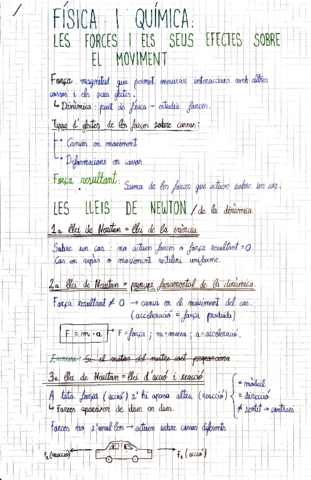 FÍSICA I QUÍMICA:
LES FORCES I ELS SEUS EFECTES SOBRE
EL MOVIMENT
Força magnitud que permet mesurar interaccions amb altres
cossos i els seus efectes.
↳ Dinàmica: part de física → estudia forces.
Tipus d'efectes de les forces sobre cossos:
• Canvis en moviment
• Deformacions en cossos.
Força resultant: Suma de les forces que actuen sobre un cos.
LES LLEIS DE NEWTON / de la dinàmica.
1a llei de Newton = llei de la inèrcia
Sobre un cos: no actuen forces o força resultant = 0
Cos en repòs o moviment rectilini uniforme.
2a llei de Newton = principi fonamental de la dinàmica.
Força resultant ≠ 0 → canvis en el moviment del cos.
(acceleració = força produïda)
F = m · a
↳ F = força ; m = massa ; a = acceleració.
3a llei de Newton = llei d'acció i reacció
A tota força (acció) s'hi oposa altra (reacció)
= mòdul
= direcció
≠ sentit → contrari
↳ Forces apareixen de dues en dues.
Forces no s'anul·len → actuen sobre cossos diferents.
F₂ (reacció)
F₁ (acció)